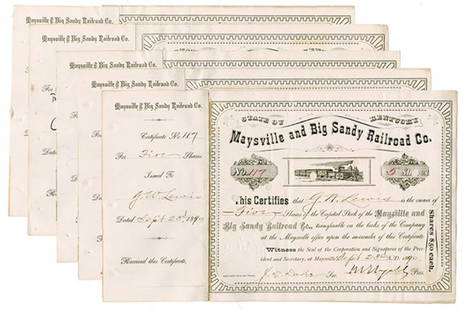 Maysville & Big Sandy Railroad Co.
Maysville & Big Sandy Railroad Co.
Maysville & Big Sandy Railroad Co.
Maysville & Big Sandy Railroad Co.
Maysville & Big Sandy Railroad Co.
Certificate No. 117
For Five Shares
Issued To
Dated Sept 23d 1890
Received this Certificate,
STATE OF KENTUCKY
Maysville and Big Sandy Railroad Co.
No. 117
5
This Certifies that Lewis is the owner of
Five Shares of the Capital Stock of the Maysville and
Big Sandy Railroad Co., transferable on the books of the Company
at the Maysville office upon the surrender of this Certificate.
Witness the Seal of the Corporation and Signatures of the Pres-
ident and Secretary, at Maysville Sept 1890
shares $50 each.